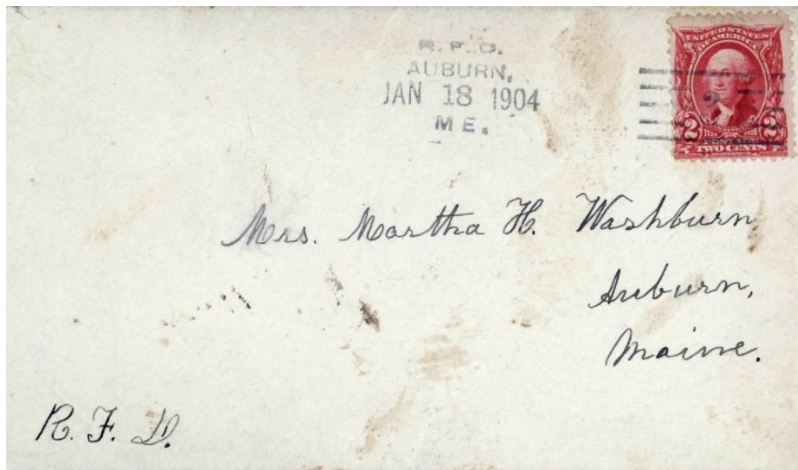 R.F.D.
AUBURN,
JAN 18 1904
ME.
UNITED STATES
OF AMERICA
2 2
TWO CENTS
Mrs. Martha H. Washburn
Auburn,
Maine.
R. F. D.